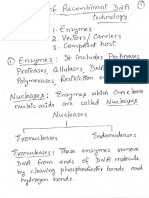 of Recombinant DNA
technology
1. Enzymes
2. Vectors/Carriers
3. Competent host.
① Enzymes: It includes Pectinases
Proteases, Cellulases, DNA
Polymerases Restriction
Nucleases: Enzymes which can cleave
nucleic acids are called Nucleases
Nucleases
Exonucleases Endonucleases
Exonucleases: These enzymes remove
DNA from ends of DNA molecule
by cleaving phosphodiester bonds and
hydrogen bonds.